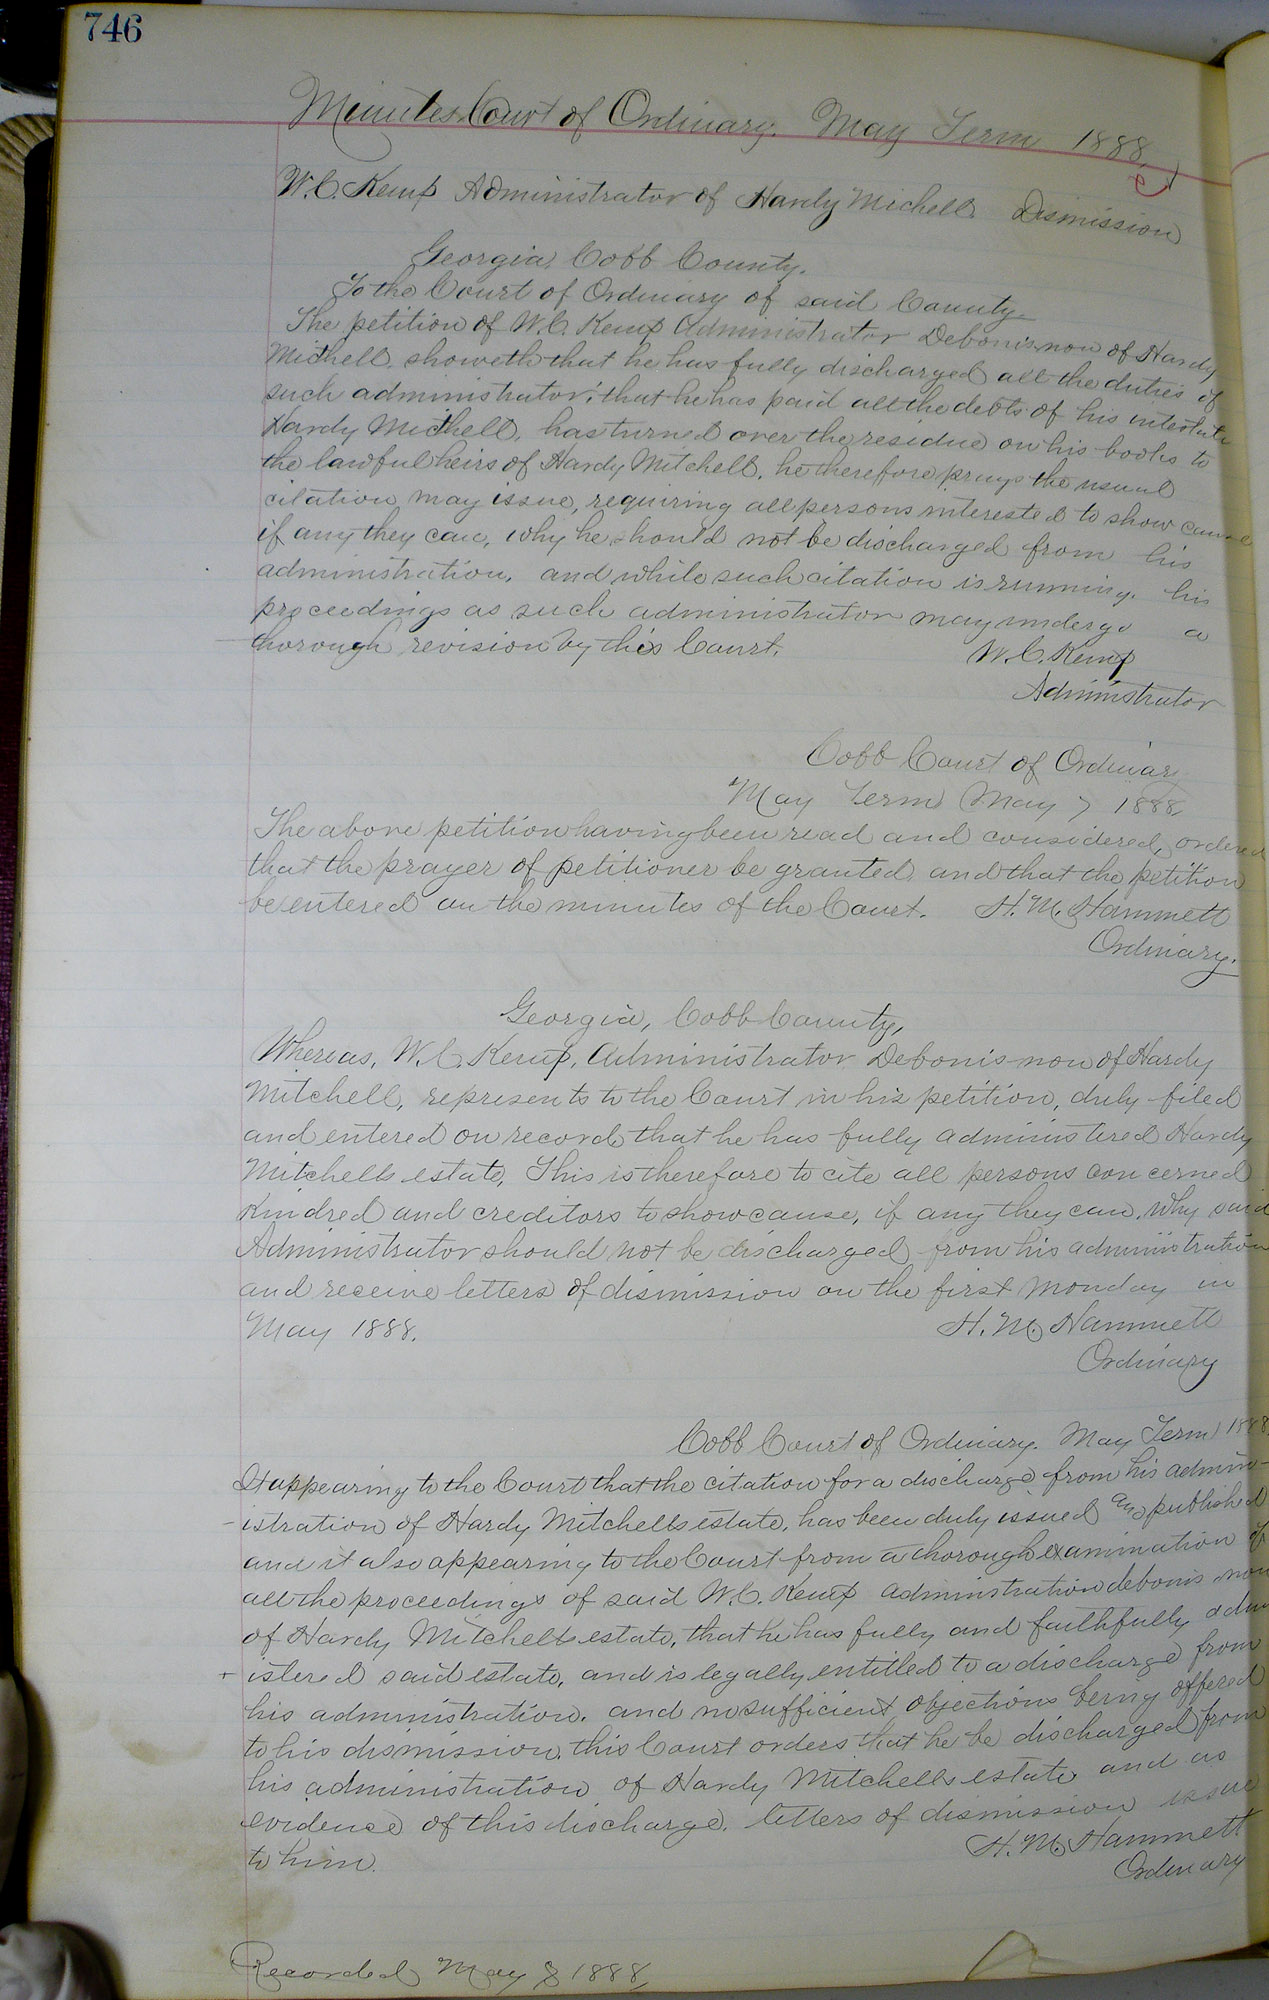 746
Minutes Court of Ordinary. May Term 1888
W.C. Kemp Administrator of Hardy Michell Dismission
Georgia, Cobb County.
To the Court of Ordinary of said County
The petition of W.C. Kemp Administrator Debonis non of Hardy
Michell, showeth that he has fully discharged all the duties of
such administrator, that he has paid all the debts of his intestate
Hardy Michell, has turned over the residue on his books to
the lawful heirs of Hardy Mitchell, he therefore prays the usual
citation may issue, requiring all persons interested to show cause
if any they can, why he should not be discharged from his
administration, and while such citation is running, his
proceedings as such administrator may undergo a
thorough revision by this Court.
W.C. Kemp
Administrator
Cobb Court of Ordinar
May Term May 7 1888,
The above petition having been read and considered, ordered
that the prayer of petitioner be granted and that the petition
be entered on the minutes of the Court. H.M. Hammett
Ordinary.
Georgia, Cobb County,
Whereas, W.C. Kemp, Administrator Debonis non of Hardy
Mitchell, represents to the Court in his petition, duly filed
and entered on record, that he has fully administered Hardy
Mitchells estate, This is therefore to cite all persons concerned
Kindred and creditors to show cause, if any they can, why said
Administrator should not be discharged from his administration
and receive letters of dismission on the first Monday in
May 1888.
H.M. Hammett
Ordinary
Cobb Court of Ordinary. May Term 1888
It appearing to the Court that the citation for a discharge from his admin-
-istration of Hardy Mitchells estate, has been duly issued and published
and it also appearing to the Court from a thorough examination of
all the proceedings of said W.C. Kemp administration debonis non
of Hardy Mitchells estate, that he has fully and faithfully adm
istered said estate, and is legally entitled to a discharge from
his administration, and no sufficient objections being offered
to his dismission, this Court orders that he be discharged from
his administration of Hardy Mitchells estate and as
evidence of this discharge, letters of dismission issue
to him.
H.M. Hammett
Ordinary
Recorded May 8 1888,